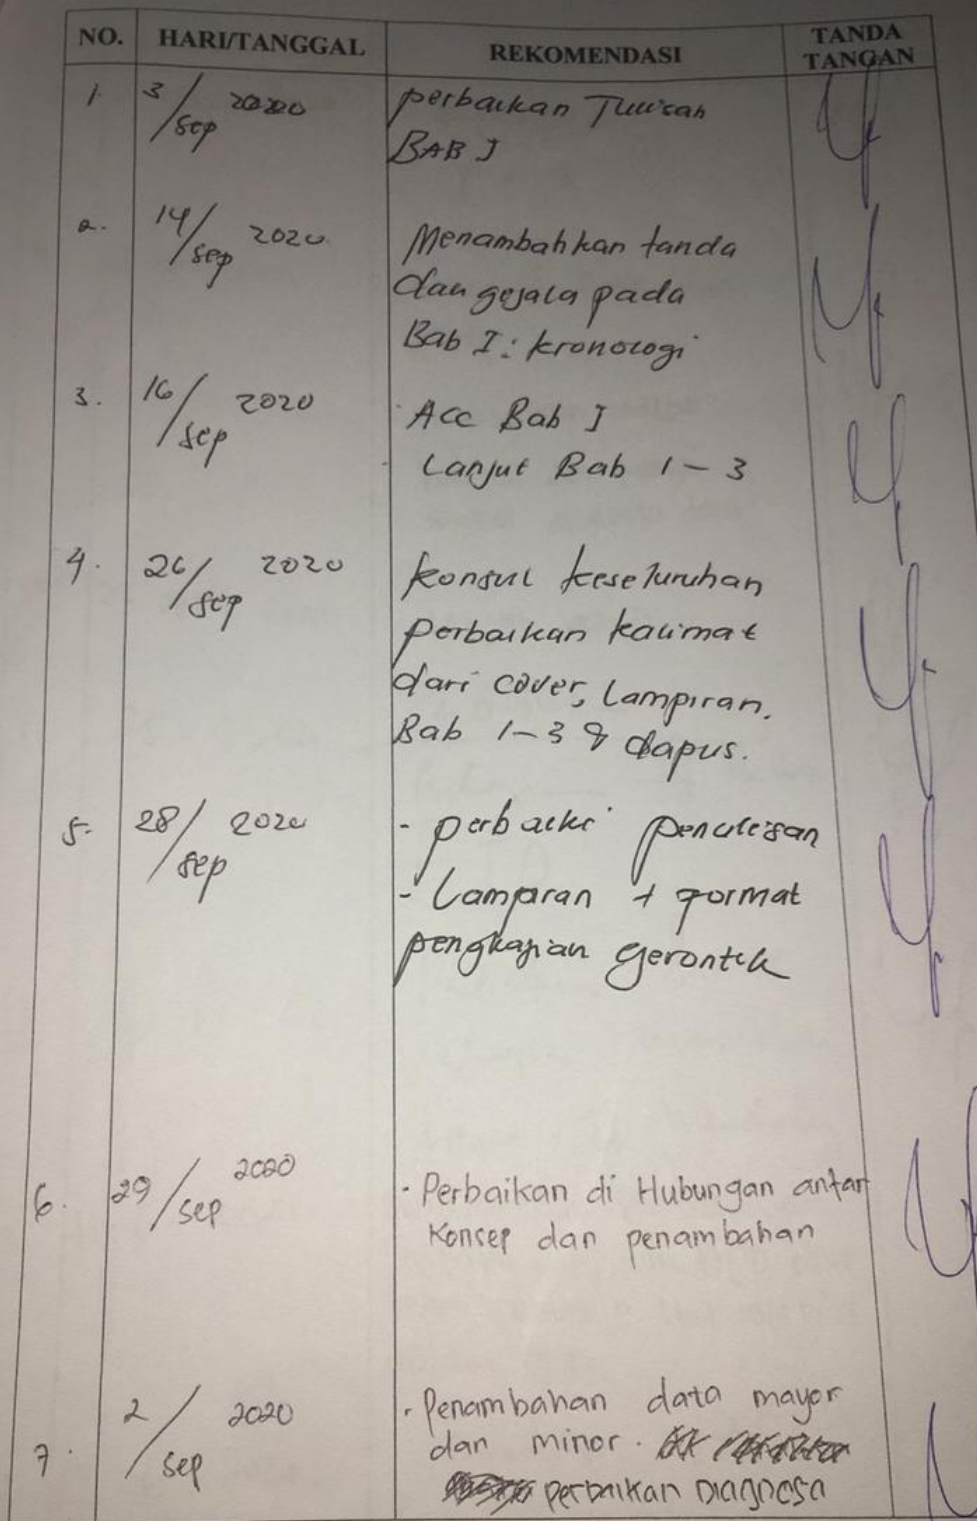 NO. HARI/TANGGAL REKOMENDASI TANDA TANGAN
1. 3/sep 2020 perbaikan Tulisan
BAB I
2. 14/sep 2020 Menambahkan tanda
dan gejala pada
Bab I : kronologi
3. 16/sep 2020 Acc Bab I
Lanjut Bab 1-3
4. 26/sep 2020 konsul keseluruhan
perbaikan kalimat
dari cover, lampiran,
Bab 1-3 & dapus.
5. 28/sep 2020 - perbaiki penulisan
- Lampiran + format
pengkajian gerontik
6. 29/sep 2020 - Perbaikan di Hubungan antar
Konsep dan penambahan
7. 2/sep 2020 - Penambahan data mayor
dan minor.
perbaikan Diagnosa